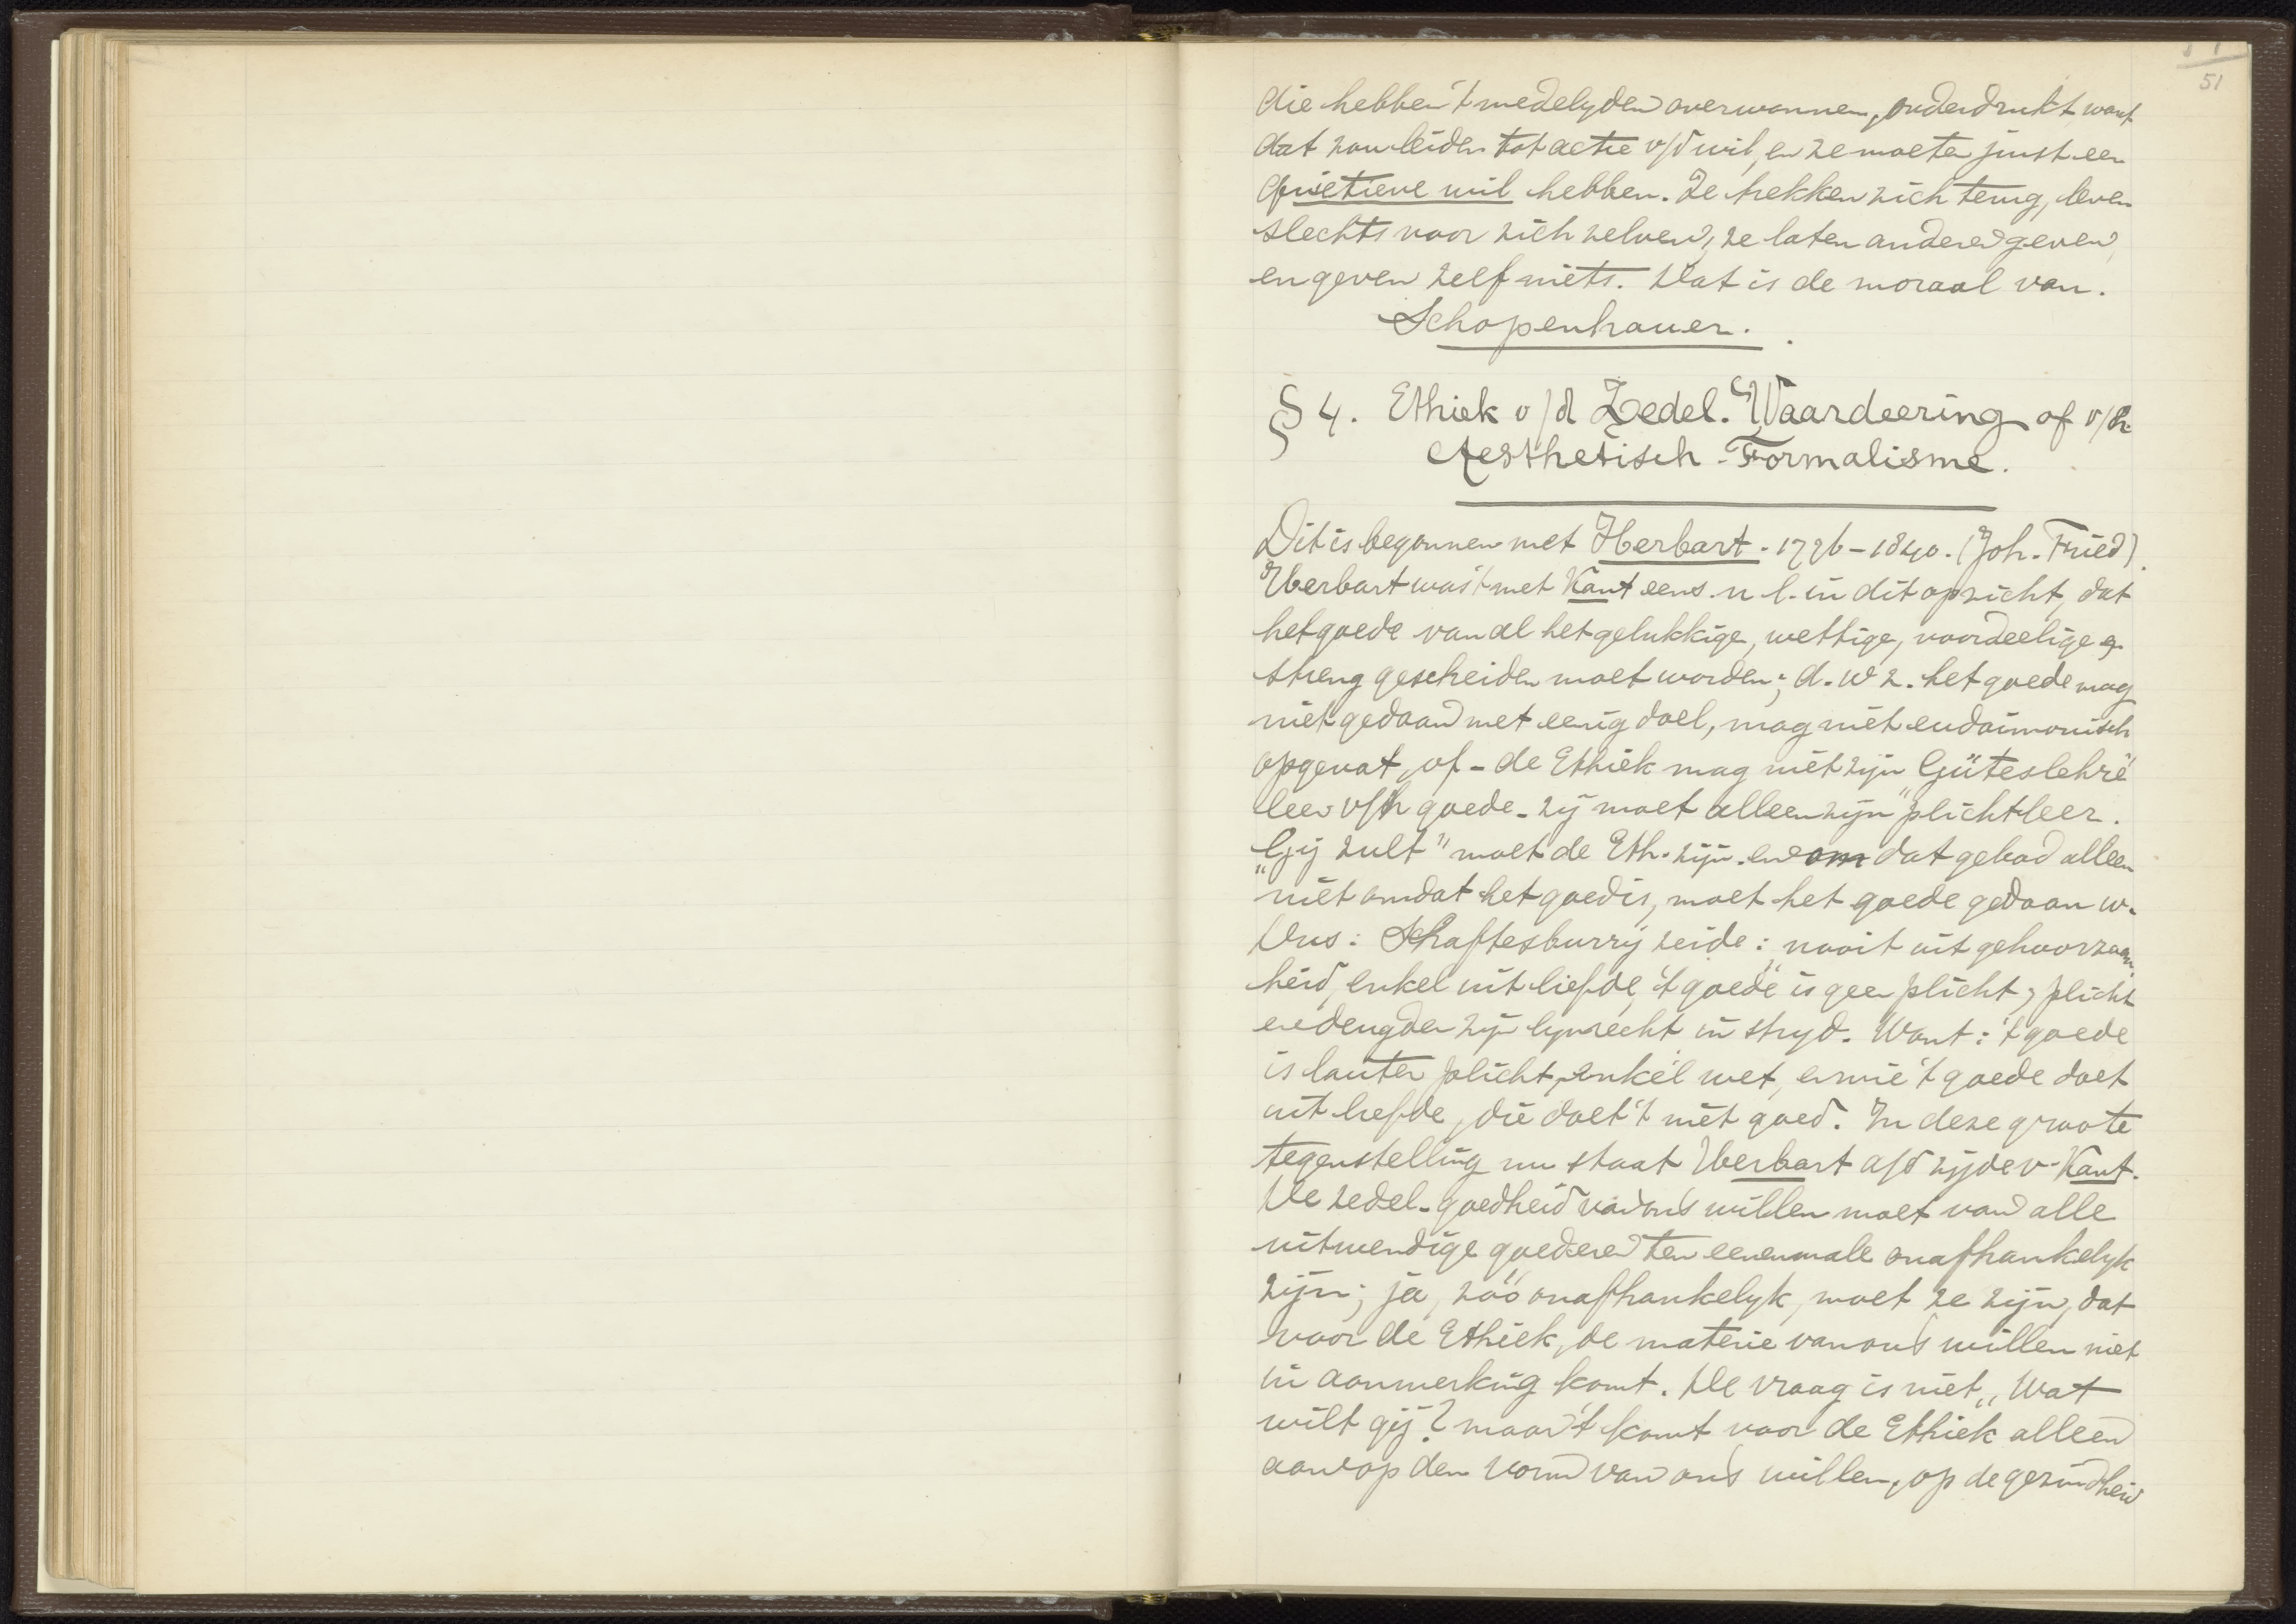 51
die hebben 't medelyden overwonnen, onderdrukt want
dat zou leiden tot actie v/d wil, en ze moeten juist een
quietieve wil hebben. Ze trekken zich terug, leven
slechts voor zich zelven, ze laten anderen geven,
en geven zelf niets. Dat is de moraal van.
Schopenhauer.
§ 4. Ethiek v/d Zedel. Waardeering of v/h.
Aesthetisch-Formalisme.
Dit is begonnen met Herbart. 1776–1840. (Joh. Fried).
Herbart was 't met Kant eens. n l. in dit opzicht, dat
het goede van al het gelukkige, wettige, voordeelige
streng gescheiden moet worden; d. w z. het goede mag
niet gedaan met eenig doel, mag niet eudaimonisch
opgevat, of - de Ethiek mag niet zijn "Güteslehre"
leer v/h goede - zij moet alleen zijn "plichtleer.
"Gij zult" moet de Eth. zijn. en om dat gebod alleen
niet omdat het goed is, moet het goede gedaan w.
Dus: Schaftesburry zeide: "nooit uit gehoorzaam
heid, enkel uit liefde, 't goede" is geen plicht, plicht
en deugden zijn lynrecht in stryd. Want: 't goede
is lauter plicht, enkel wet, en wie 't goede doet
uit liefde, die doet 't niet goed. In deze groote
tegenstelling nu staat Herbart a/d zijde v. Kant.
De zedel. goedheid van ons willen moet van alle
uitwendige goederen ten eenenmale onafhankelyk
zijn; ja, zóó onafhankelyk, moet ze zijn, dat
voor de Ethiek, de materie van ons willen niet
in aanmerking komt. De vraag is niet, "Wat
wilt gij? maar 't komt voor de Ethiek alleen
aan op den vorm van ons willen, op de gezindheid